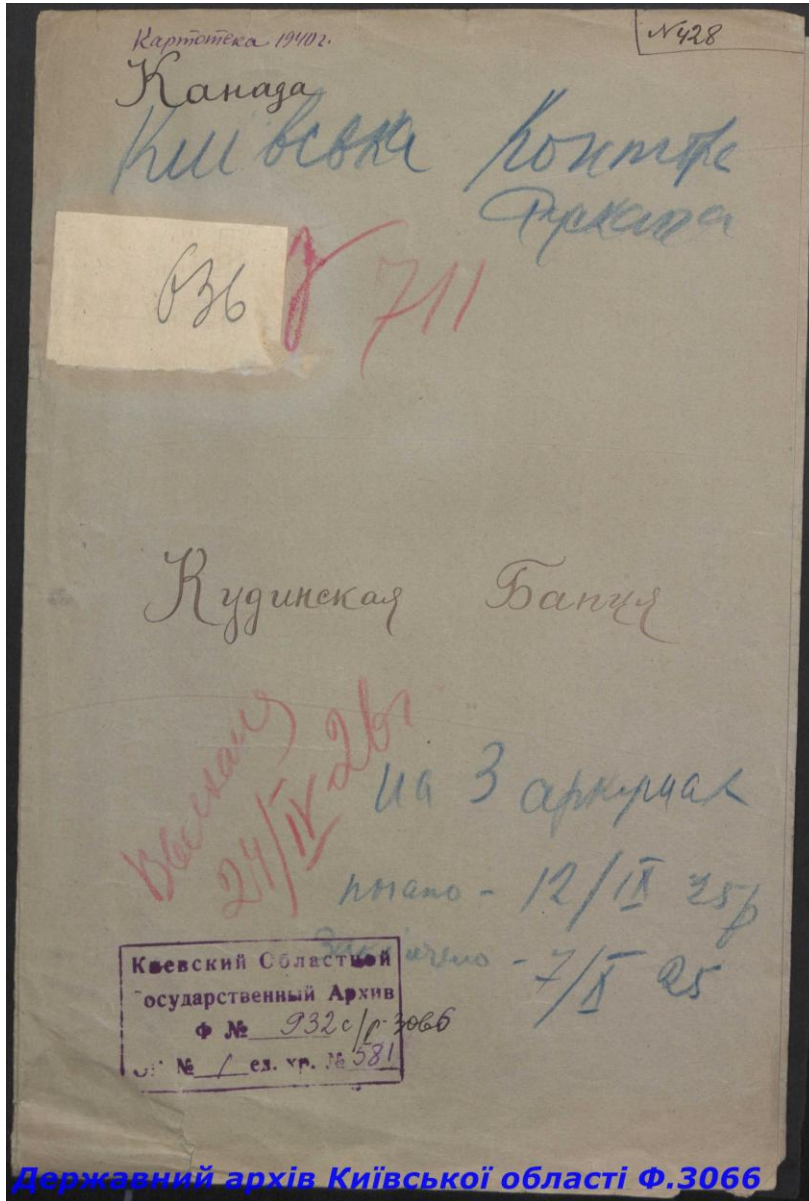 Картотека 1940г.
№428
Канада
Київська Контора
636
711
Кудинская Бапця
Выехала
24/IV-26г
на 3 аркушах
почато - 12/IX 25р
Закінчено - 7/X 25
Киевский Областной
Государственный Архив
Ф № 932 с/р-3066
ОП № 1 ед. хр. № 581
Державний архів Київської області Ф.3066